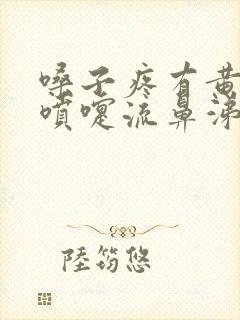 嗓子疼有黄
喷嚏流鼻涕
陸筠悠